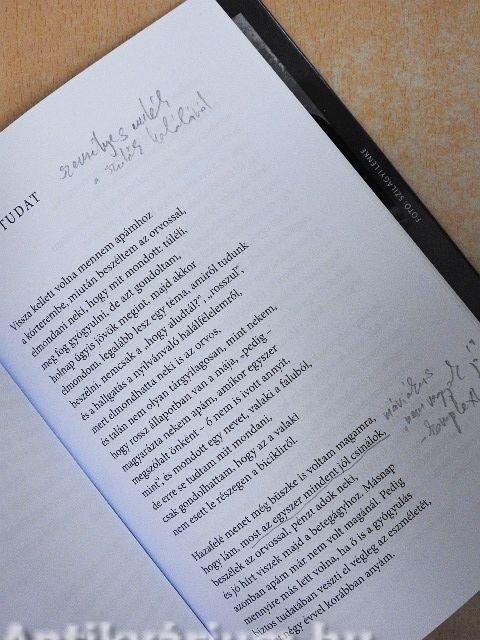 TUDAT
személyes emlék
a szülők halálával
Vissza kellett volna mennem apámhoz
a kórterembe, miután beszéltem az orvossal,
elmondani neki, hogy mit mondott: túléli,
meg fog gyógyulni, de azt gondoltam,
holnap úgyis jövök megint, majd akkor
elmondom, legalább lesz egy téma, amiről tudunk
beszélni, nemcsak a „hogy aludtál?”, „rosszul”,
és a hallgatás a nyilvánvaló halálfélelemről,
mert elmondhatta neki is az orvos,
és talán nem olyan tárgyilagosan, mint nekem,
hogy rossz állapotban van a mája, „pedig –
magyarázta nekem apám, amikor egyszer
megszólalt önként – ő nem is ivott annyit,
mint”, és mondott egy nevet, valaki a faluból,
de erre se tudtam mit mondani,
csak gondolhattam, hogy az a valaki
nem esett le részegen a bicikliről.
Hazafelé menet még büszke is voltam magamra,
hogy lám, most az egyszer mindent jól csinálok,
beszélek az orvossal, pénzt adok neki,
és jó hírt viszek majd a betegágyhoz. Másnap
azonban apám már nem volt magánál. Pedig
mennyire más lett volna, ha ő is a gyógyulás
biztos tudatában veszti el végleg az eszméletét,
négy évvel korábban anyám.
FOTÓ SZILÁGYI LENKE
Antikvárium.hu